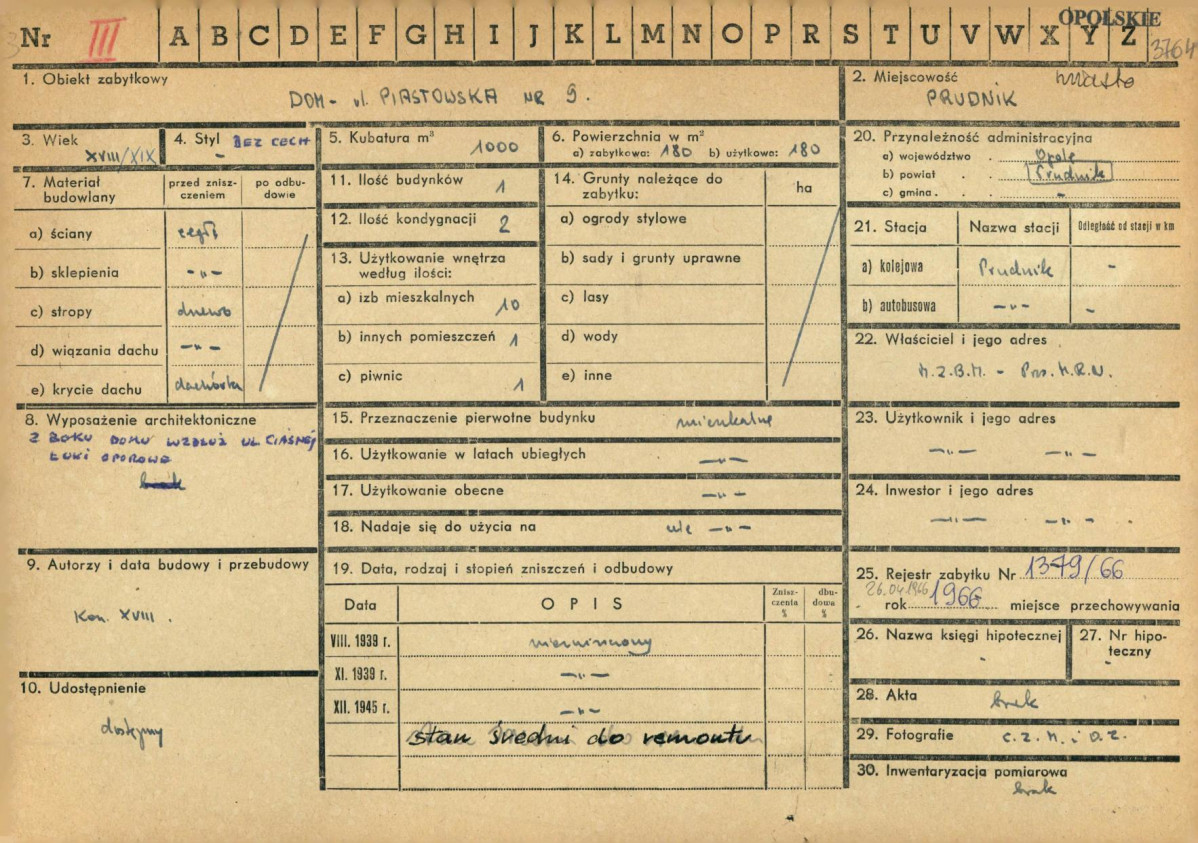 Nr III A B C D E F G H I J K L M N O P R S T U V W X Y Z
OPOLSKIE
3764
1. Obiekt zabytkowy
DOM - ul. PIASTOWSKA NR 9.
2. Miejscowość miasto
PRUDNIK
3. Wiek
XVIII/XIX
4. Styl BEZ CECH
-
5. Kubatura m³
1000
6. Powierzchnia w m²
a) zabytkowa: 180 b) użytkowa: 180
7. Materiał budowlany
przed zniszczeniem
po odbudowie
a) ściany cegła
b) sklepienia -"-
c) stropy drewno
d) wiązania dachu -"-
e) krycie dachu dachówka
8. Wyposażenie architektoniczne
Z BOKU DOMU WZDŁUŻ UL. CIASNEJ
ŁUKI OPOROWE
brak
9. Autorzy i data budowy i przebudowy
Kon. XVIII.
10. Udostępnienie
dostępny
11. Ilość budynków 1
12. Ilość kondygnacji 2
13. Użytkowanie wnętrza
według ilości:
a) izb mieszkalnych 10
b) innych pomieszczeń 1
c) piwnic 1
14. Grunty należące do
zabytku:
ha
a) ogrody stylowe
b) sady i grunty uprawne
c) lasy
d) wody
e) inne
15. Przeznaczenie pierwotne budynku mieszkalne
16. Użytkowanie w latach ubiegłych -"-
17. Użytkowanie obecne -"-
18. Nadaje się do użycia na -"-
19. Data, rodzaj i stopień zniszczeń i odbudowy
Data
OPIS
Zniszczenia %
dbudowa %
VIII. 1939 r.
XI. 1939 r. -"-
XII. 1945 r. -"-
stan średni do remontu
20. Przynależność administracyjna
a) województwo . Opole
b) powiat . . Prudnik
c) gmina . . -
21. Stacja
Nazwa stacji
Odległość od stacji w km
a) kolejowa Prudnik -
b) autobusowa -"- -
22. Właściciel i jego adres
M.Z.B.M. - Prez. M.R.N.
23. Użytkownik i jego adres
-"- -"-
24. Inwestor i jego adres
-"- -"- .
25. Rejestr zabytku Nr 1379/66
26.04.1966
rok 1966 miejsce przechowywania
26. Nazwa księgi hipotecznej
-
27. Nr hipoteczny
-
28. Akta
brak
29. Fotografie C.Z.M. i O.Z.
30. Inwentaryzacja pomiarowa
brak